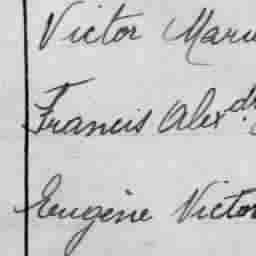 Victor Marie
Francis Alexdr
Eugène Victor